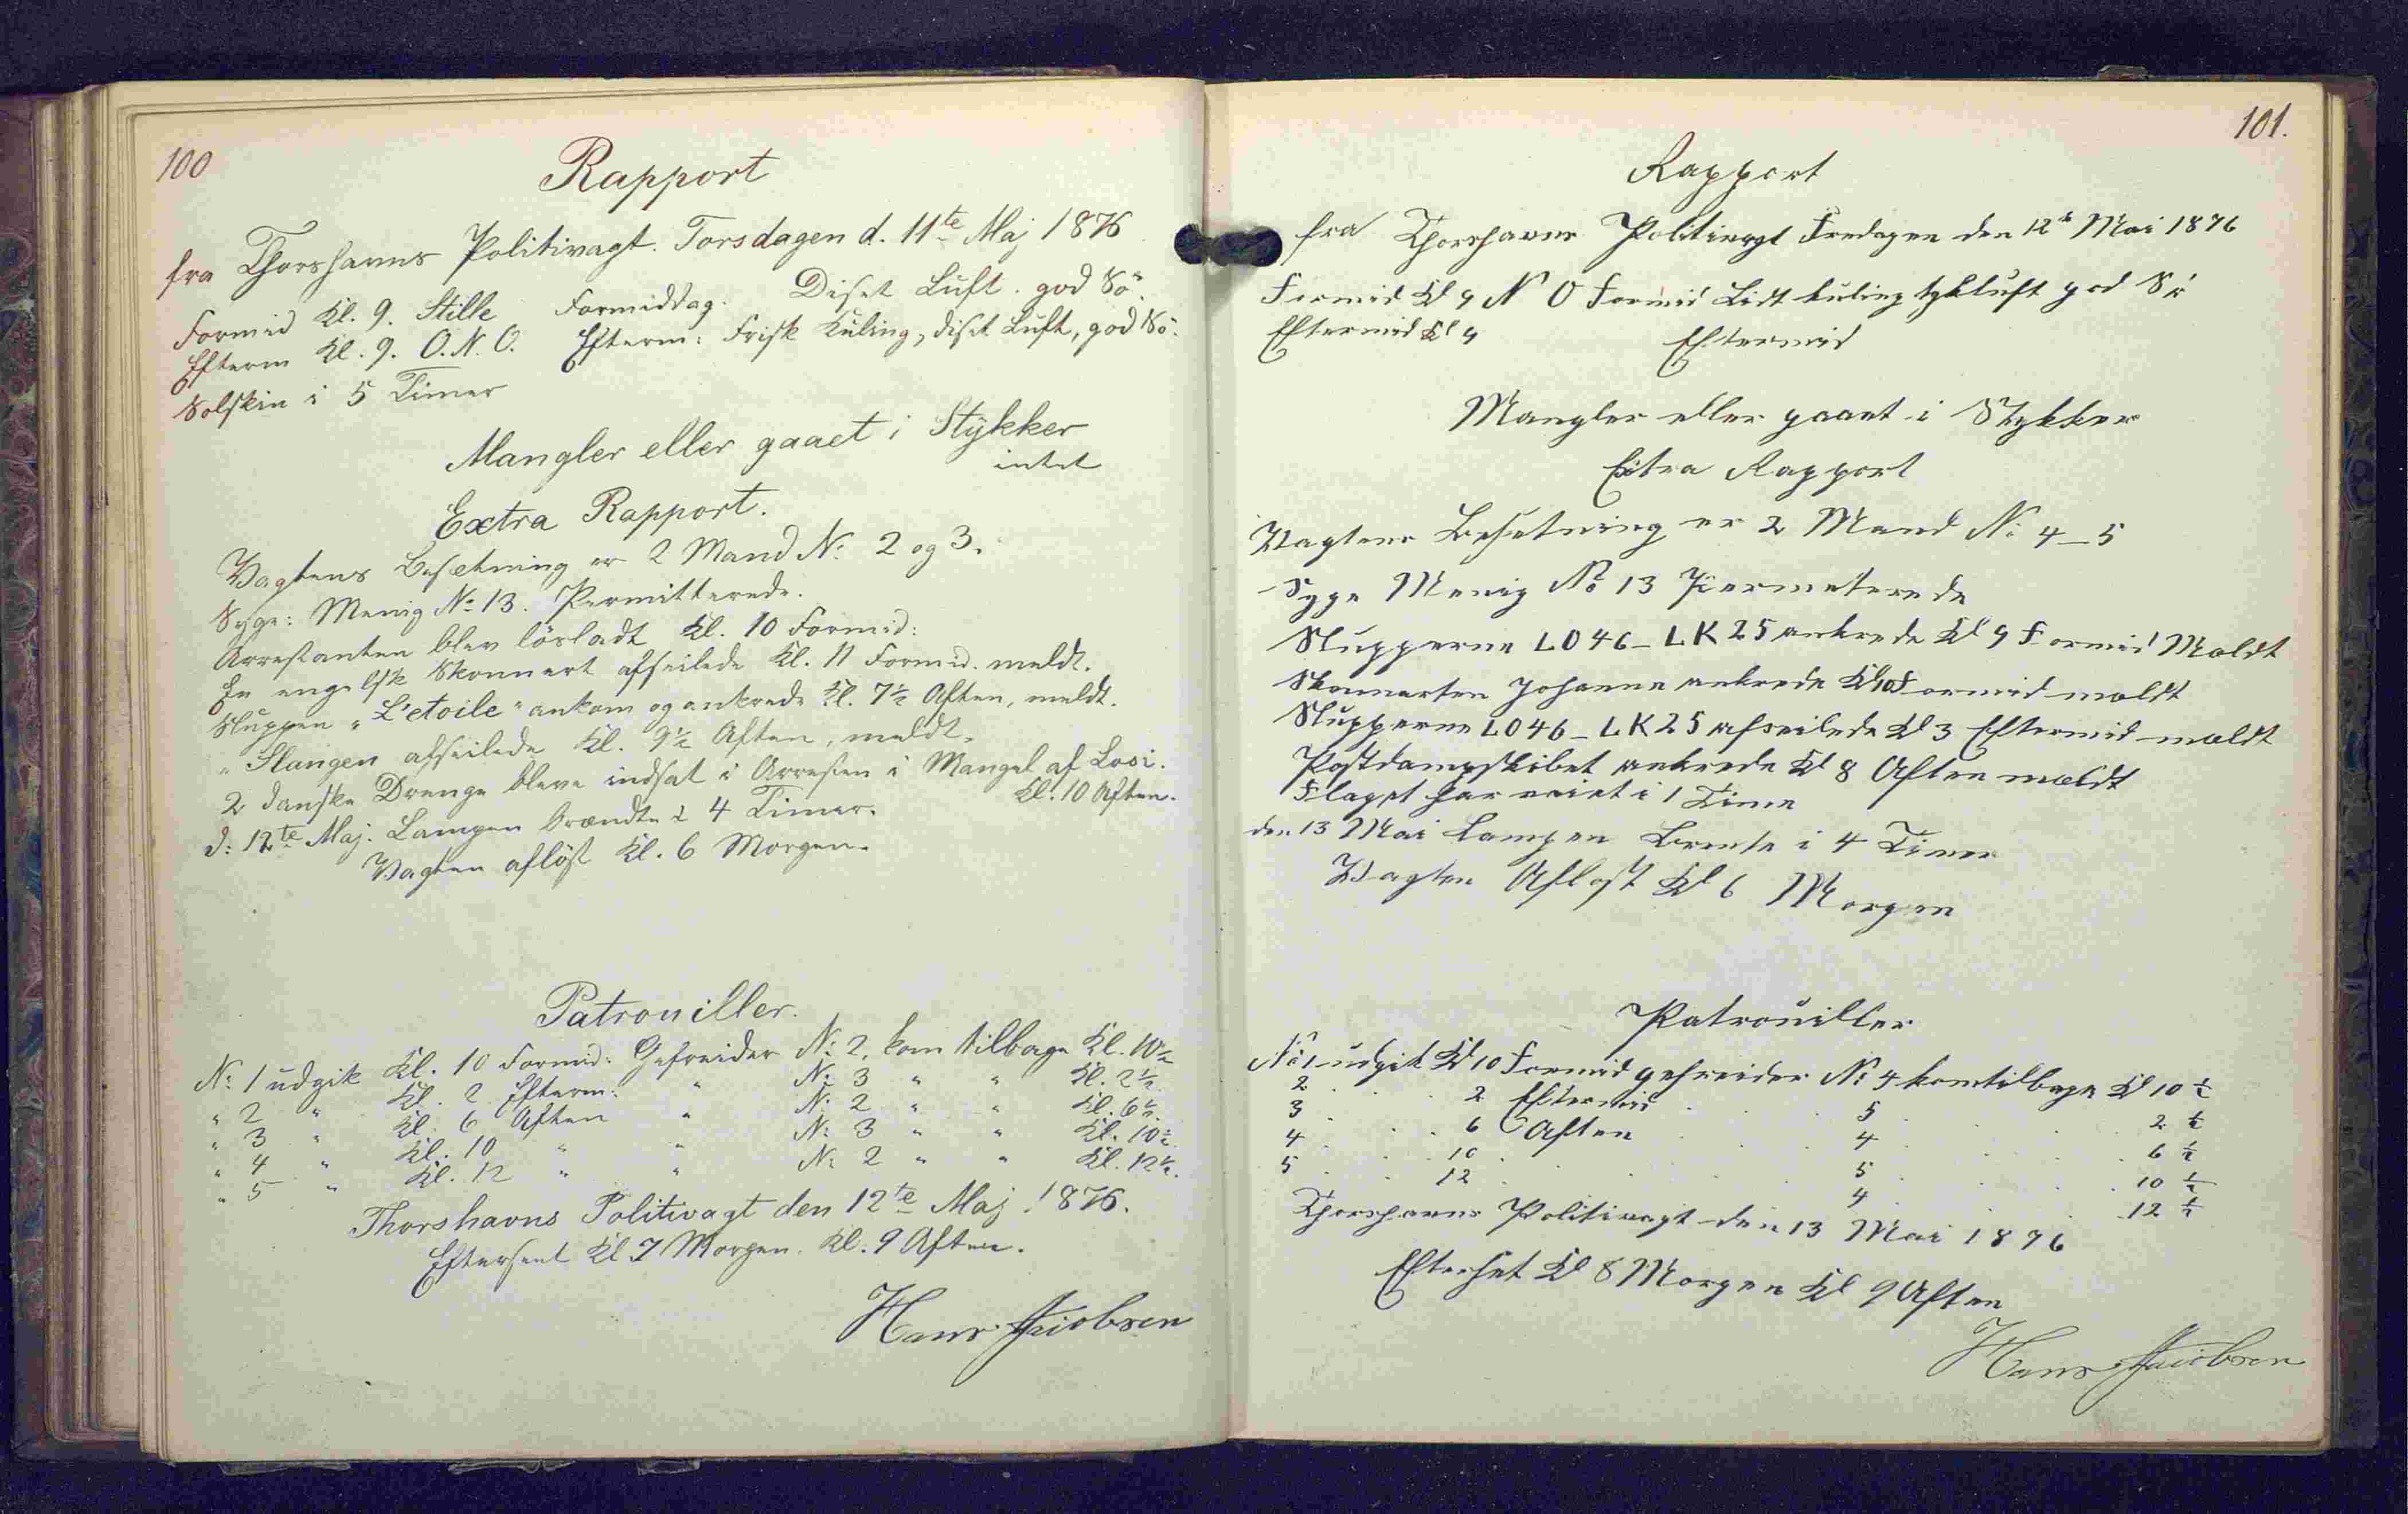 100
Rapport
fra Thorshavns Politivagt. Torsdagen d. 11te Maj 1876
Formid Kl. 9. Stille Formiddag. Diset Luft. god Sö.
Efterm Kl. 9. O.N.O. Efterm: Frisk Kuling, diset Luft, god Sö.
Solskin i 5 Timer
Mangler eller gaaet i Stykker
intet
Extra Rapport.
Vagtens Besetning er 2 Mand No 2 og 3.
Syge: Menig No 13. Permitterede.
Arrestanten blev lösladt Kl. 10 Formid:
En engelsk Skonnert afseilede Kl. 11 Formid. meldt.
Sluppen "L'etoile" ankom og ankrede Kl. 7½ Aften, meldt.
" Slangen afseilede Kl. 9½ Aften, meldt.
2 danske Drenge bleve indsat i Arresten i Mangel af Losi.
Kl. 10 Aften.
d: 12te Maj. Lampen brændte i 4 Timer.
Vagten aflöst Kl. 6 Morgen.
Patrouiller.
No 1 udgik Kl. 10 Formid: Gefreider No 2, kom tilbage Kl. 10½
" 2 " Kl. 2 Efterm: " No 3 " " Kl. 2½.
" 3 " Kl. 6 Aften " No 2 " " Kl. 6½.
" 4 " Kl. 10 " " No 3 " " Kl. 10½
" 5 " Kl. 12 " " No 2 " " Kl. 12½.
Thorshavns Politivagt den 12te Maj 1876.
Efterseet Kl 7 Morgen. Kl. 9 Aften.
Hans Jacobsen
101.
Rapport
fra Thorshavns Politivagt Fredagen den 12te Mai 1876
Formid Kl 9 N O Formid Lidt kuling tykluft god Sö
Eftermid Kl 9 Eftermid
Mangler eller gaaet i Stykker
Extra Rapport
Vagtens Besetning er 2 Mand No 4_5
Syge Menig No 13 Permeterede
Slupperne LO46_LK25 ankrede Kl 9 Formid Mældt
Skonnerten Johanne ankrede Kl 10 Formid mældt
Slupperne LO46_LK25 afseilede Kl 3 Eftermid mældt
Postdampskibet ankrede Kl 8 Aften mældt
Flaget har veiet i 1 Time
den 13 Mai Lampen Brente i 4 Timer
Vagten Aflöst Kl 6 Morgen
Patrouiller
No 1 udgik Kl 10 Formid gefreider No 4 kom tilbage Kl 10½
2 . . 2 Eftermid . . 5 . . 2½
3 . . 6 Aften . . 4 . . 6½
4 . . 10 . . 5 . . 10½
5 . . 12 . . 4 . . 12½
Thorshavns Politivagt den 13 Mai 1876
Efterset Kl 8 Morgen Kl 9 Aften
Hans Jacobsen